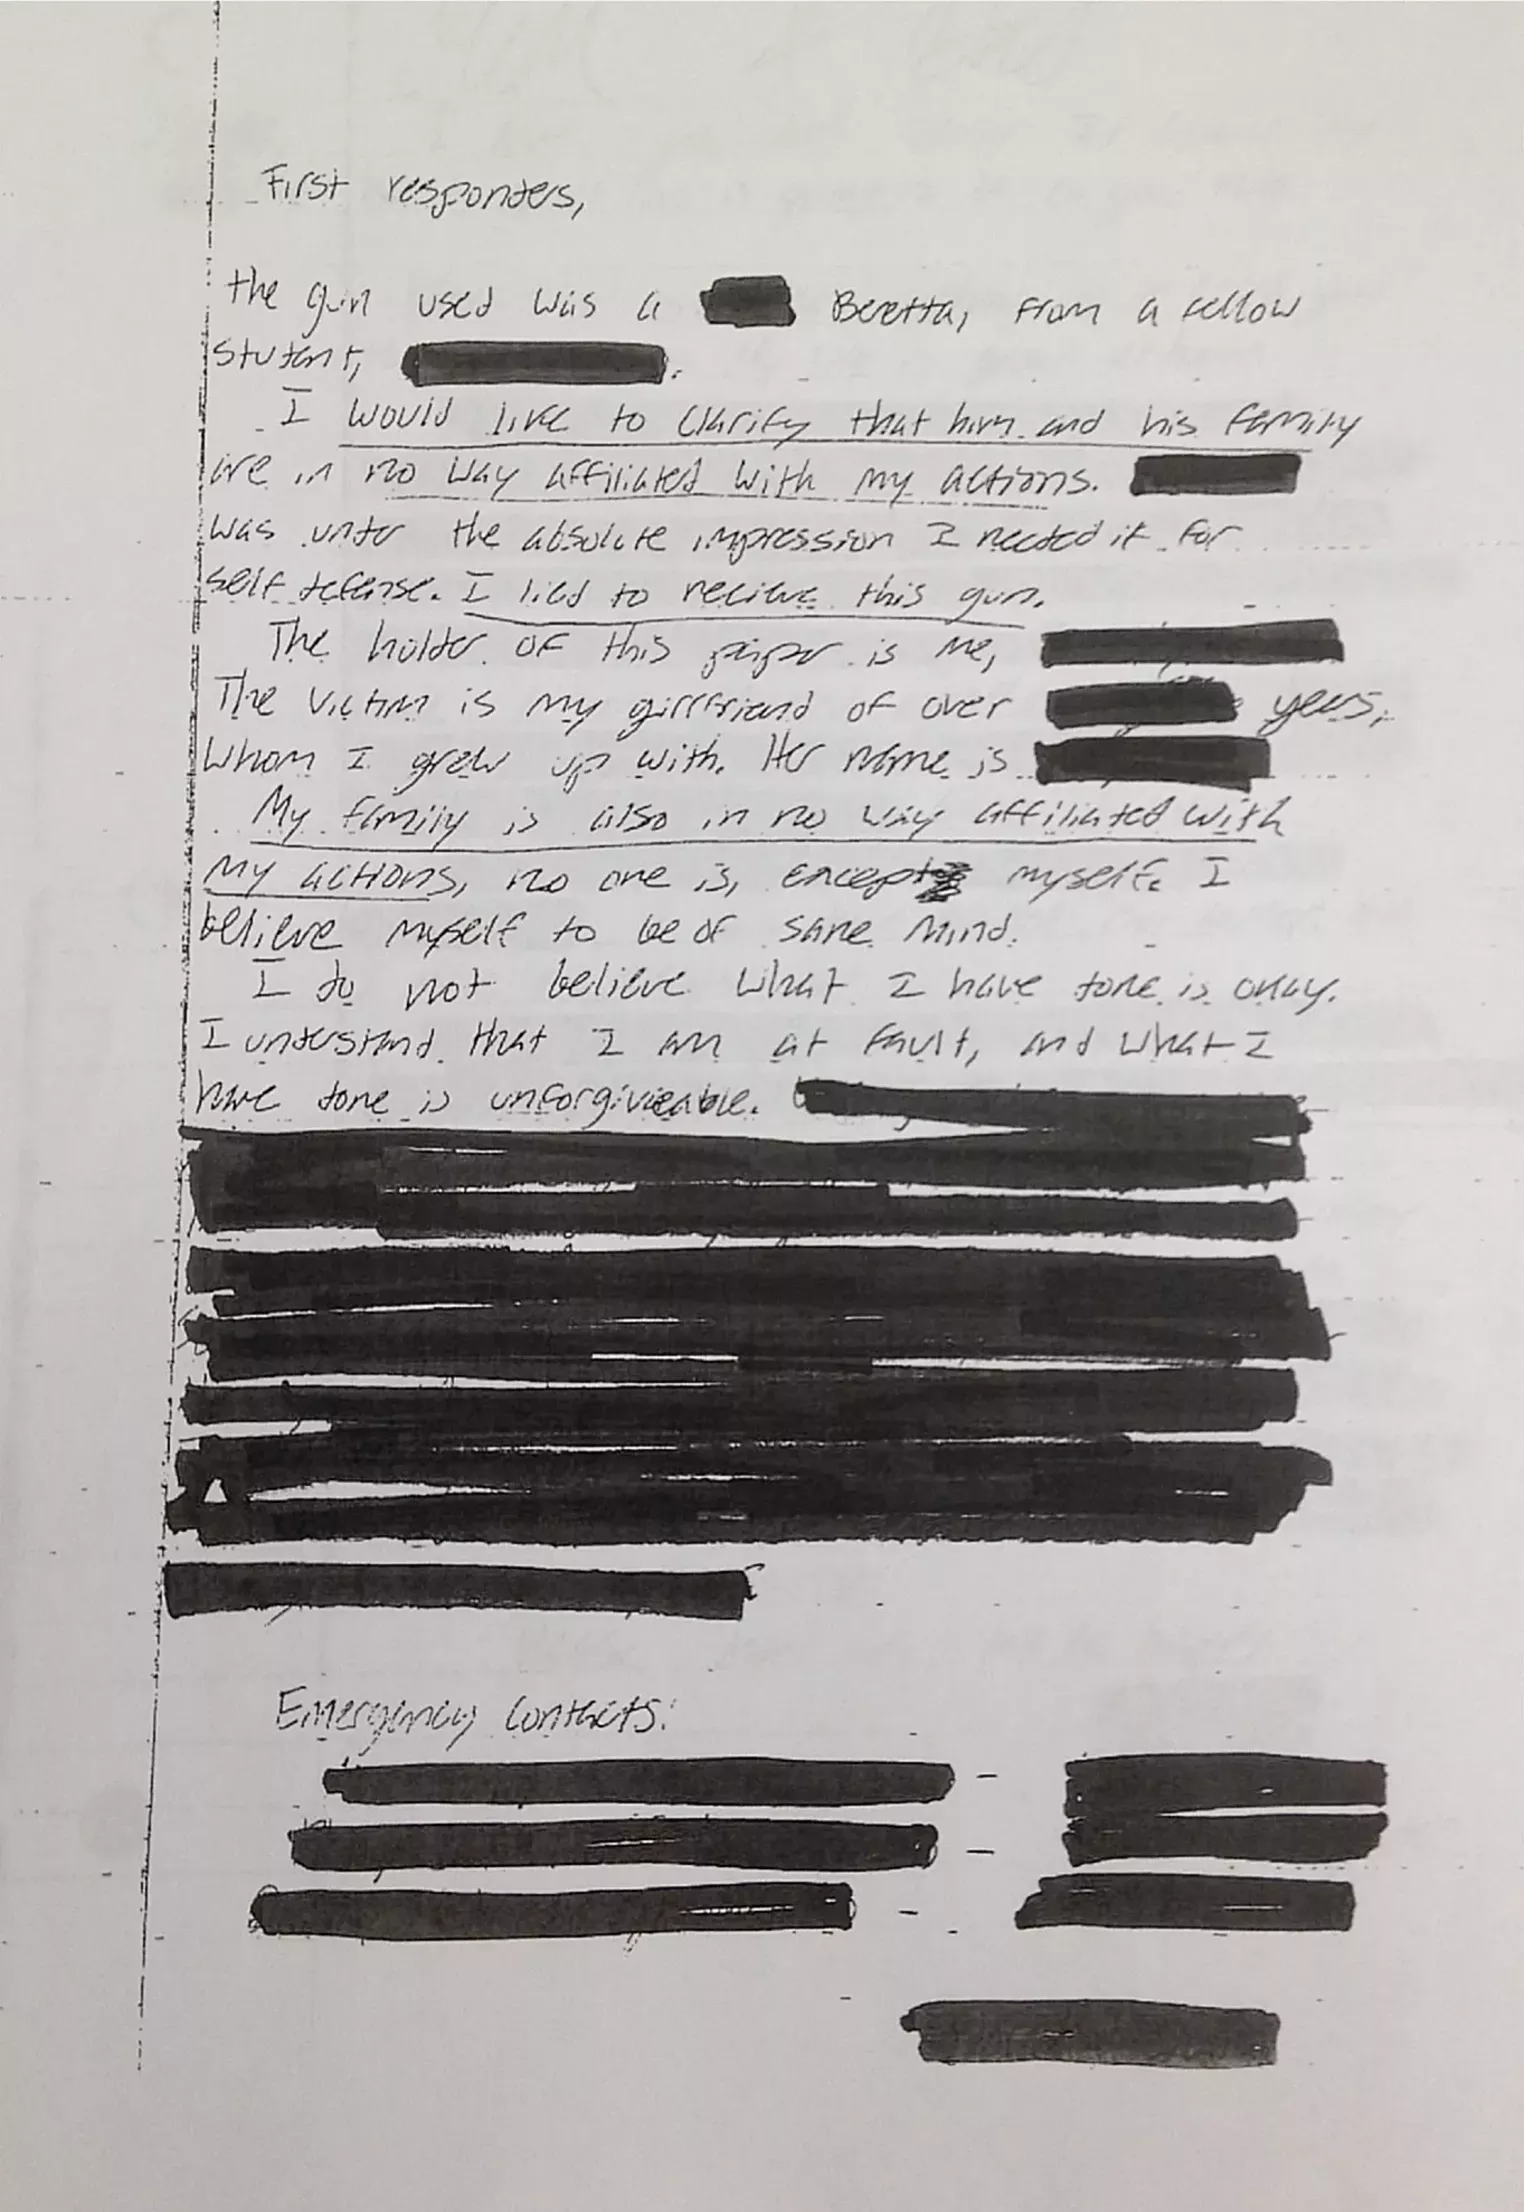 First responders,
the gun used was a Beretta, from a fellow
student, .
I would like to clarify that him and his family
are in no way affiliated with my actions.
was under the absolute impression I needed it for
self defense. I lied to recieve this gun.
The holder of this paper is me,
The victim is my girlfriend of over years,
whom I grew up with. Her name is
My family is also in no way affiliated with
my actions, no one is, except myself. I
believe myself to be of sane mind.
I do not believe what I have done is okay.
I understand that I am at fault, and what I
have done is unforgivieable.
Emergency contacts:
-
-
-